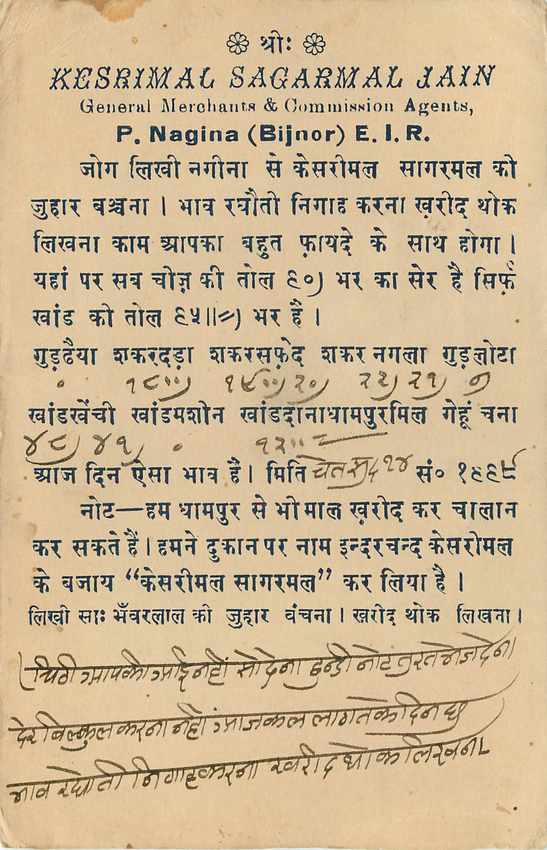 श्रीः
KESRIMAL SAGARMAL JAIN
General Merchants & Commission Agents,
P. Nagina (Bijnor) E. I. R.
जोग लिखी नगीना से केसरीमल सागरमल की
जुहार बञ्चना । भाव रघौती निगाह करना ख़रीद थोक
लिखना काम आपका बहुत फ़ायदे के साथ होगा ।
यहां पर सब चीज़ की तोल ६०) भर का सेर है सिर्फ़
खांड की तोल ६५॥=) भर है ।
गुड़ढैया शकरदड़ा शकरसफ़ेद शकर नगला गुड़लोटा
१८॥) १९॥) २०) २२) २१)
खांडखेंची खांडमशीन खांडदानाधामपुरमिल गेहूं चना
४८) ४१)
आज दिन ऐसा भाव है । मिति चेत सुद १४ सं० १९९९
नोट—हम धामपुर से भी माल ख़रीद कर चालान
कर सकते हैं । हमने दुकान पर नाम इन्दरचन्द केसरीमल
के बजाय “केसरीमल सागरमल” कर लिया है ।
लिखी साः भँवरलाल की जुहार वंचना । खरीद थोक लिखना ।
चिठी आपकी आई नहीं सो देना हुन्डी नोट तुरत भेज देना
देर बिल्कुल करना नहीं आजकल लागत के दिन छ
भाव रघौती निगाह करना खरीद थोक लिखना